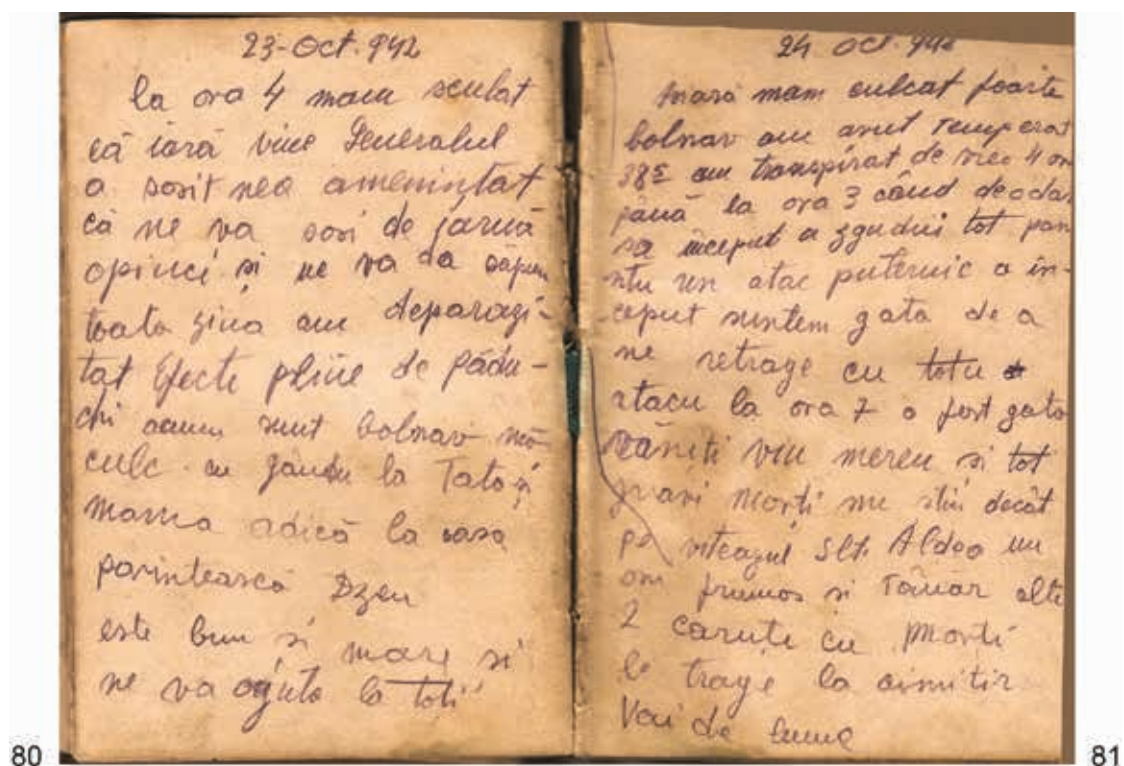 23-Oct. 942
la ora 4 mam sculat
că iară vine Generalul
a sosit nea amenințat
că ne va sosi de iarnă
opinci și ne va da săpun
toata ziua am deparazi-
tat Efecte pline de pădu-
chi acum sunt bolnav mă
culc cu gându la Tata și
mama adică la casa
părintească Dzeu
este bun și mare și
ne va ajuta la toti
80
24 oct. 942
mam culcat foarte
bolnav am avut temperat
385 am transpirat de vreo 4 or
până la ora 3 când deodat
sa început a zgudui tot pam
ntu un atac puternic a în-
ceput suntem gata de a
ne retrage cu totu
atacu la ora 7 o fost gata
răniți viu mereu si tot
gravi morți nu stiu decât
pe viteazul Slt. Aldea un
om frumos si Tânăr alte
2 caruțe cu morți
le trage la cimitir
Vai de lume
81